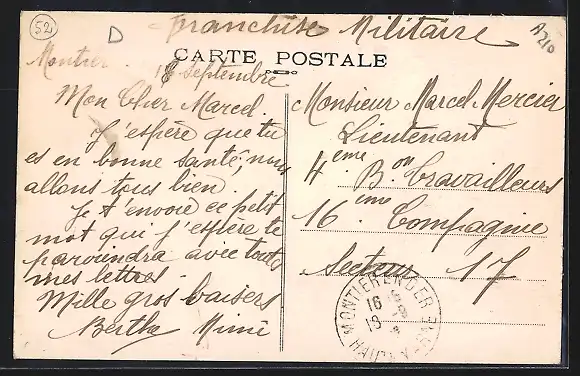 52
D
A210
Franchise Militaire
CARTE POSTALE
Montier . 18 septembre
Mon Cher Marcel.
J'espère que tu
es en bonne santé, nous
allons tous bien.
Je t'envoie ce petit
mot qui j'espère te
parviendra avec toutes
mes lettres.
Mille gros baisers
Berthe Mimi
Monsieur Marcel Mercier
Lieutenant
4ème Bon travailleurs
16ème Compagnie
Secteur 17
MONTIERENDER
HAUTE-MARNE
16